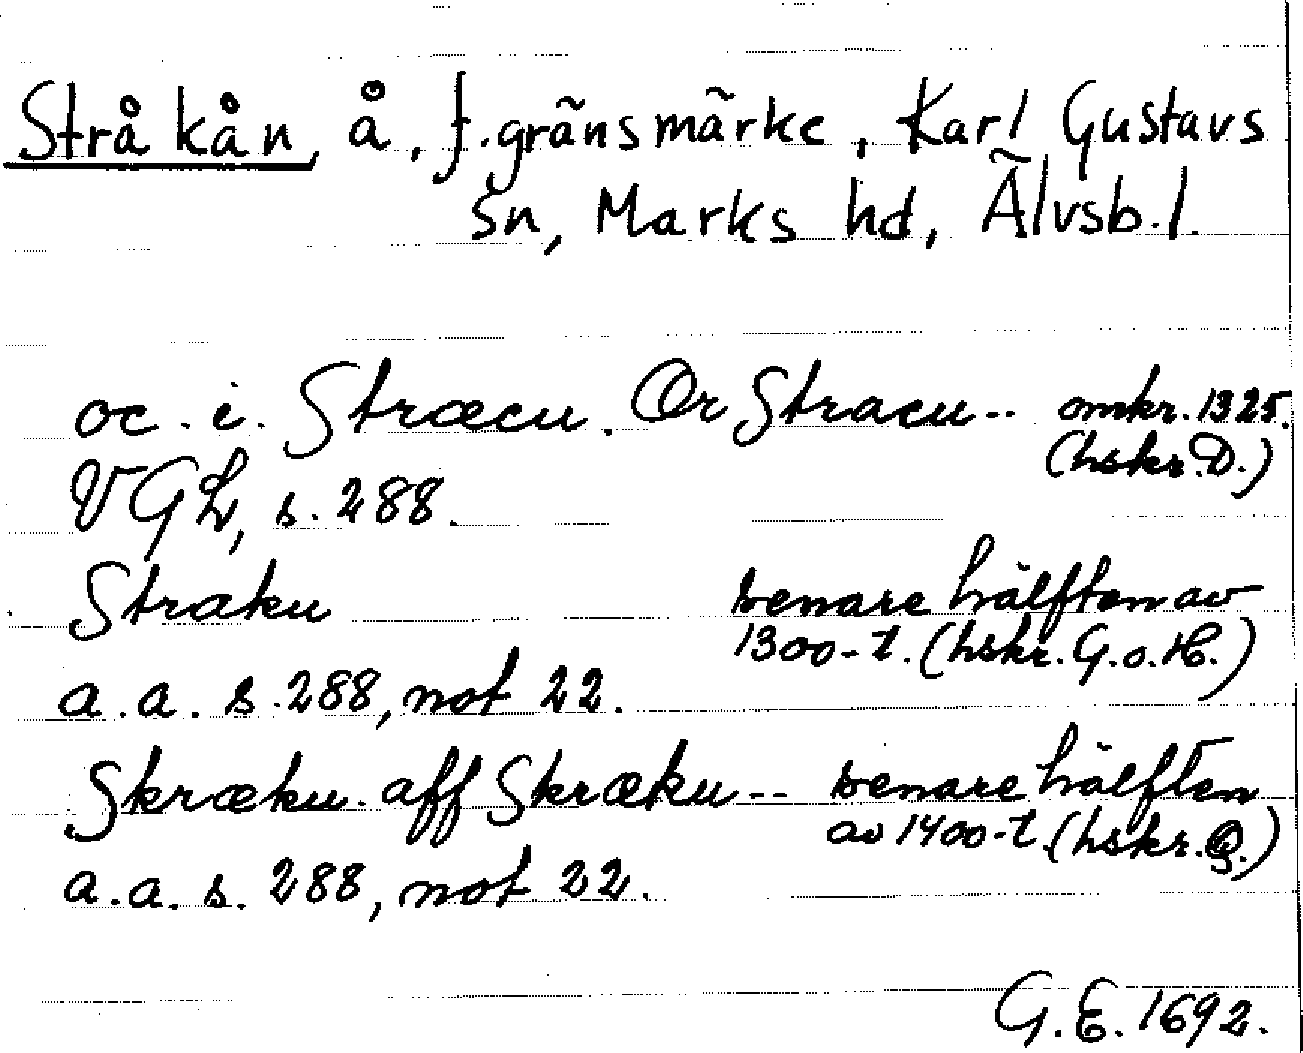 Stråkån, å, f. gränsmärke, Karl Gustavs
sn, Marks hd, Älvsb. l.
oc. i. Stræcu. Or Stracu-- omkr. 1325.
(hskr. D.)
VGL, s. 288.
Straku senare hälften av
1300-t. (hskr. G. o. H.)
a. a. s. 288, not 22.
Skræku. aff Skræku-- senare hälften
av 1400-t. (hskr. Q.)
a. a. s. 288, not 22.
G. E. 1692.